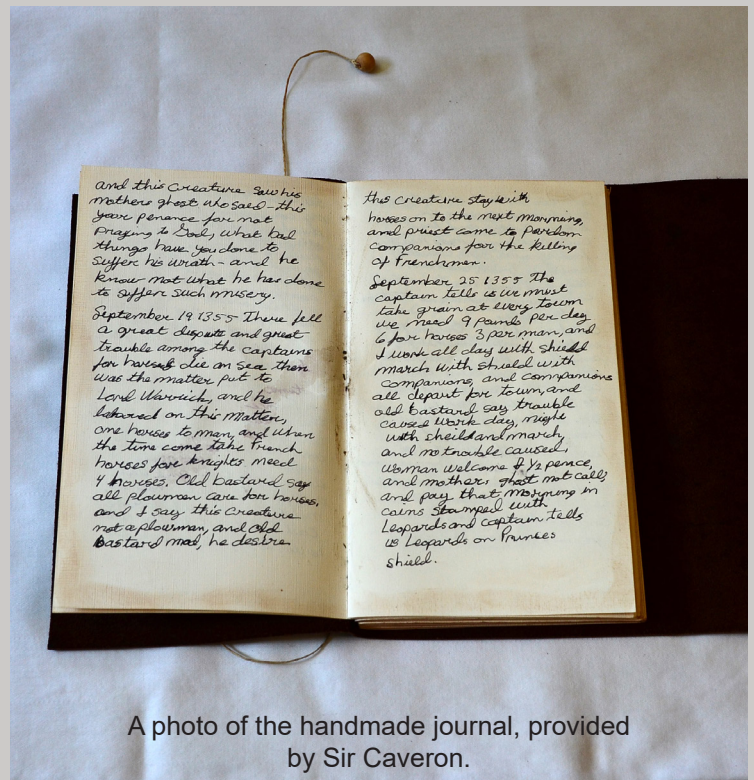 and this Creature saw his
mothers ghost who said - this
your penance for not
praying to God, what bad
things have you done to
suffer his wrath - and he
know not what he has done
to suffer such misery.
September 19 1355 There fell
a great dispute and great
trouble among the captains
for horses die on sea then
was the matter put to
Lord Warrick, and he
labored on this matter,
one horses to man, and when
the time come take French
horses for knights need
4 horses. Old bastard say
all plowmen care for horses,
and I say this creature
not a plowman, and old
bastard mad, he desire
this creature stay with
horses on to the next morning,
and priest come to pardon
companions for the killing
of Frenchmen.
September 25 1355 The
captain tells us we must
take grain at every town
we need 9 pounds per day
6 for horses 3 per man, and
I work all day with shield
march with shield with
companions, and companions
all depart for town, and
old bastard say trouble
caused work day, night
with sheild and march,
and no trouble caused,
woman welcome 1/2 pence,
and mothers ghost not call,
and pay that morning in
coins stamped with
Leopards and captain tells
us Leopards on Prinses
shield.
A photo of the handmade journal, provided
by Sir Caveron.